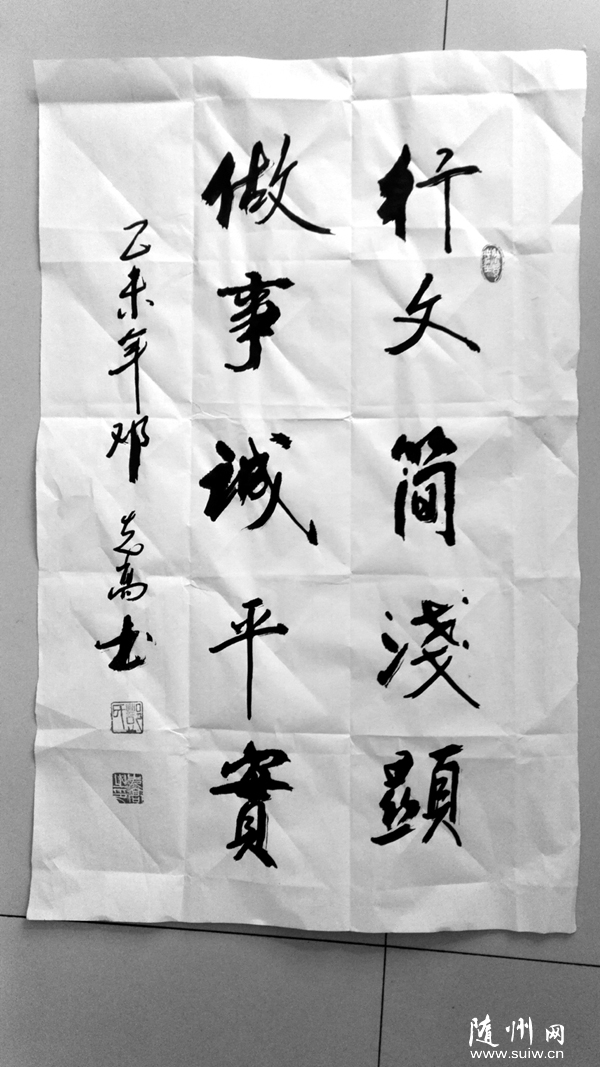 行文简淺顯
做事誠平實
乙未年邓先高书
随州网
www.suiw.cn